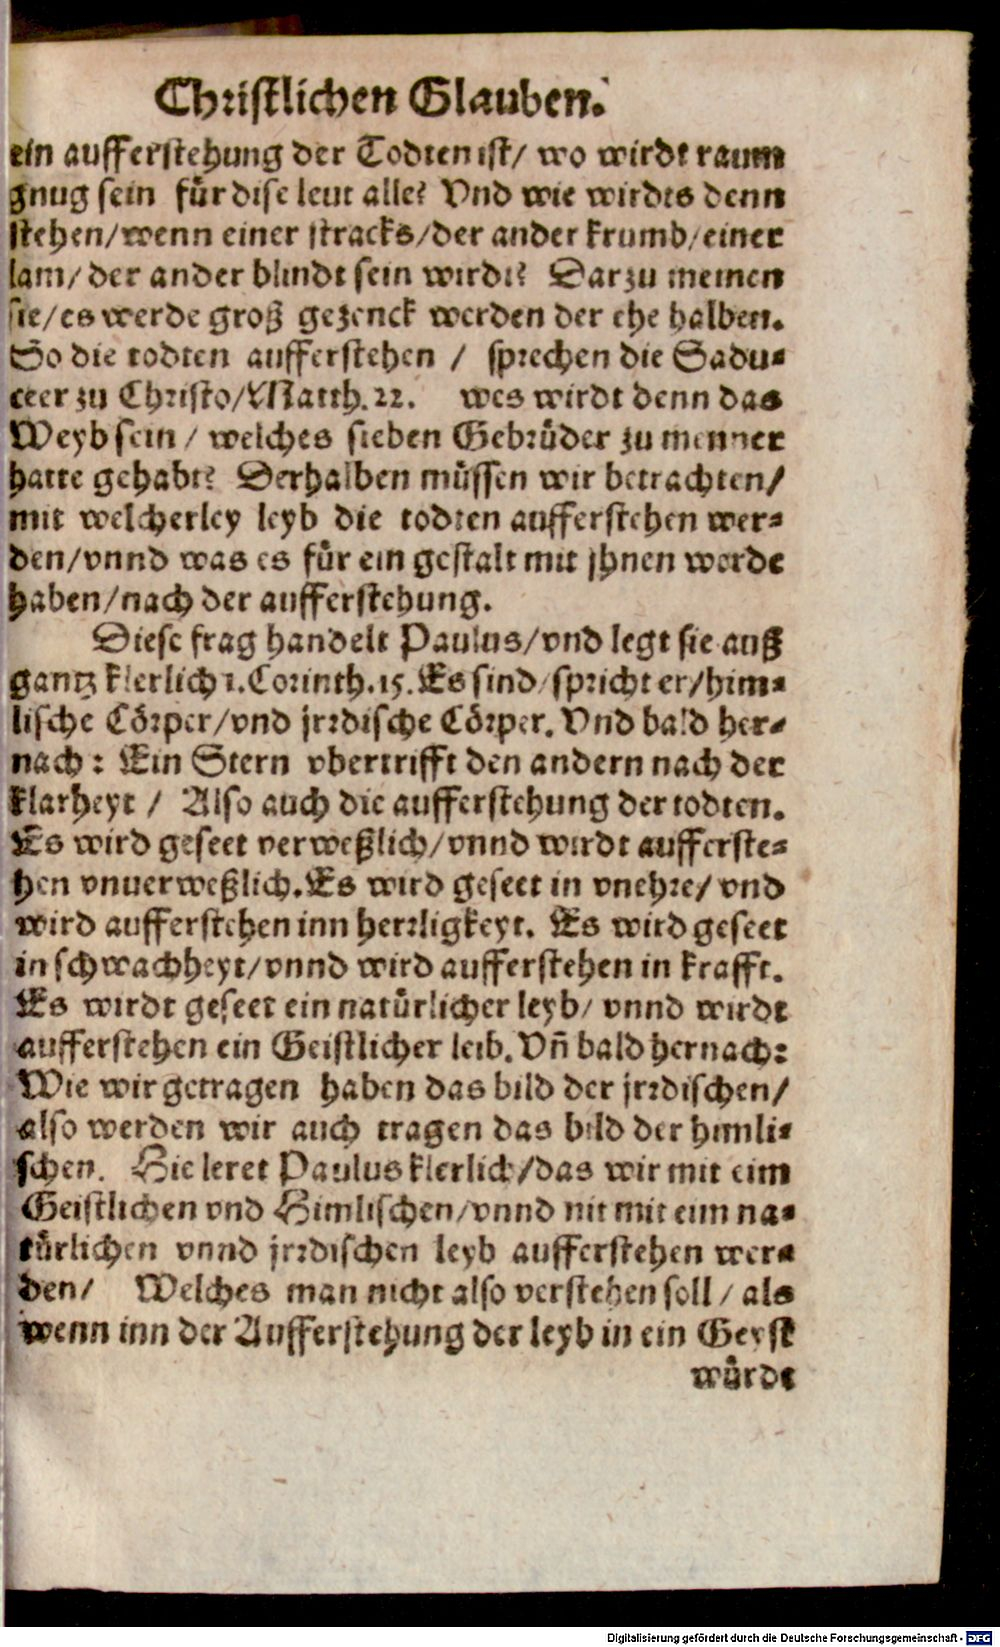 Christlichen Glauben.
ein aufferstehung der Todten ist/ wo wirdt raum
gnug sein für dise leut alle? Vnd wie wirdts denn
stehen/wenn einer stracks/der ander krumb/einer
lam/ der ander blindt sein wirdt? Darzu meinen
sie/es werde groß gezenck werden der ehe halben.
So die todten aufferstehen / sprechen die Sadu-
ceer zu Christo/Matth.22. wes wirdt denn das
Weyb sein / welches sieben Gebrüder zu menner
hatte gehabt? Derhalben müssen wir betrachten/
mit welcherley leyb die todten aufferstehen wer-
den/vnnd was es für ein gestalt mit jhnen werde
haben/nach der aufferstehung.
Diese frag handelt Paulus/vnd legt sie auß
gantz klerlich 1.Corinth.15. Es sind/spricht er/him-
lische Cörper/vnd jrrdische Cörper. Vnd bald her-
nach: Ein Stern vbertrifft den andern nach der
klarheyt / Also auch die aufferstehung der todten.
Es wird geseet verweßlich/vnnd wirdt aufferste-
hen vnuerweßlich. Es wird geseet in vnehre/ vnd
wird aufferstehen inn herrligkeyt. Es wird geseet
in schwachheyt/vnnd wird aufferstehen in krafft.
Es wirdt geseet ein natürlicher leyb/ vnnd wirdt
aufferstehen ein Geistlicher leib. Vñ bald hernach:
Wie wir getragen haben das bild der jrrdischen/
also werden wir auch tragen das bild der himli-
schen. Hie leret Paulus klerlich/das wir mit eim
Geistlichen vnd Himlischen/vnnd nit mit eim na-
türlichen vnnd jrrdischen leyb aufferstehen wer-
den/ Welches man nicht also verstehen soll / als
wenn inn der Aufferstehung der leyb in ein Geyst
würde
Digitalisierung gefördert durch die Deutsche Forschungsgemeinschaft - DFG